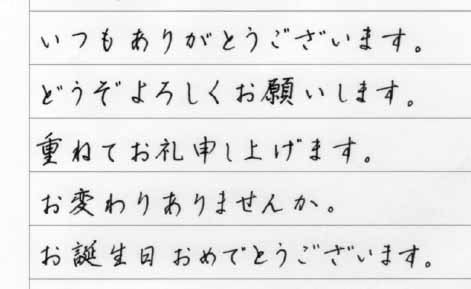 いつもありがとうございます。
どうぞよろしくお願いします。
重ねてお礼申し上げます。
お変わりありませんか。
お誕生日おめでとうございます。